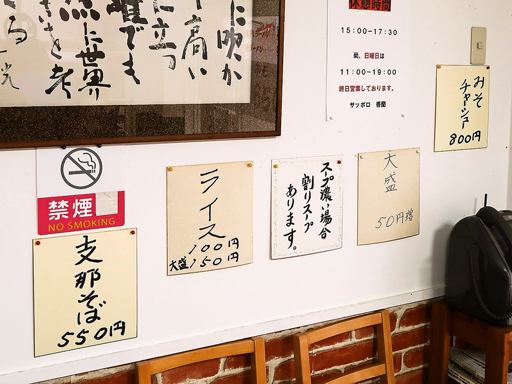 に吹か
高い
に立つ
誰でも
に世界
休憩時間
15:00-17:30
尚、日曜日は
11:00-19:00
終日営業しております。
サッポロ 香蘭
みそ
チャーシュー
800円
禁煙
NO SMOKING
支那そば
550円
ライス
100円
大盛150円
スープ濃い場合
割りスープ
あります。
大盛
50円増